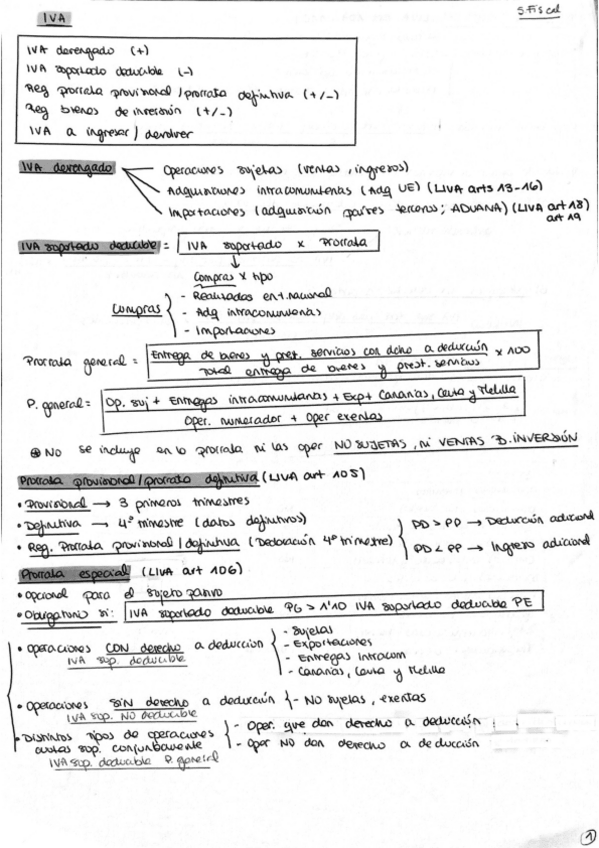 IVA
S Fiscal
IVA devengado (+)
IVA soportado deducible (-)
Reg prorrata provisional / prorrata definitiva (+/-)
Reg bienes de inversión (+/-)
IVA a ingresar / devolver
IVA devengado
Operaciones sujetas (ventas, ingresos)
Adquisiciones intracomunitarias (Adq UE) (LIVA arts 13-16)
Importaciones (adquisición países terceros; ADUANA) (LIVA art 18)
art 19
IVA soportado deducible = IVA soportado x Prorrata
Compras x tipo
Compras
- Realizadas en t. nacional
- Adq intracomunitarias
- Importaciones
Prorrata general = Entrega de bienes y prest. servicios con dcho a deducción x 100
Total entrega de bienes y prest. servicios
P. general = Op. suj + Entregas intracomunitarias + Exp + Canarias, Ceuta y Melilla
Oper. numerador + Oper exentas
⊗ No se incluye en la prorrata ni las oper NO SUJETAS, ni VENTAS B. INVERSIÓN
Prorrata provisional / prorrata definitiva (LIVA art 105)
• Provisional → 3 primeros trimestres
• Definitiva → 4º trimestre (datos definitivos)
• Reg. Prorrata provisional / definitiva (Declaración 4º trimestre)
PD > PP → Deducción adicional
PD < PP → Ingreso adicional
Prorrata especial (LIVA art 106)
• Opcional para el sujeto pasivo
• Obligatorio si: IVA soportado deducible PG > 1'10 IVA soportado deducible PE
• Operaciones CON derecho a deducción
IVA sop. deducible
- Sujetas
- Exportaciones
- Entregas Intracom
- Canarias, Ceuta y Melilla
• Operaciones SIN derecho a deducción {- No sujetas, exentas
IVA sop. NO deducible
• Distintos tipos de operaciones
cuotas sop. conjuntamente
IVA sop. deducible P. general
- Oper. que dan derecho a deducción
- Oper NO dan derecho a deducción
1